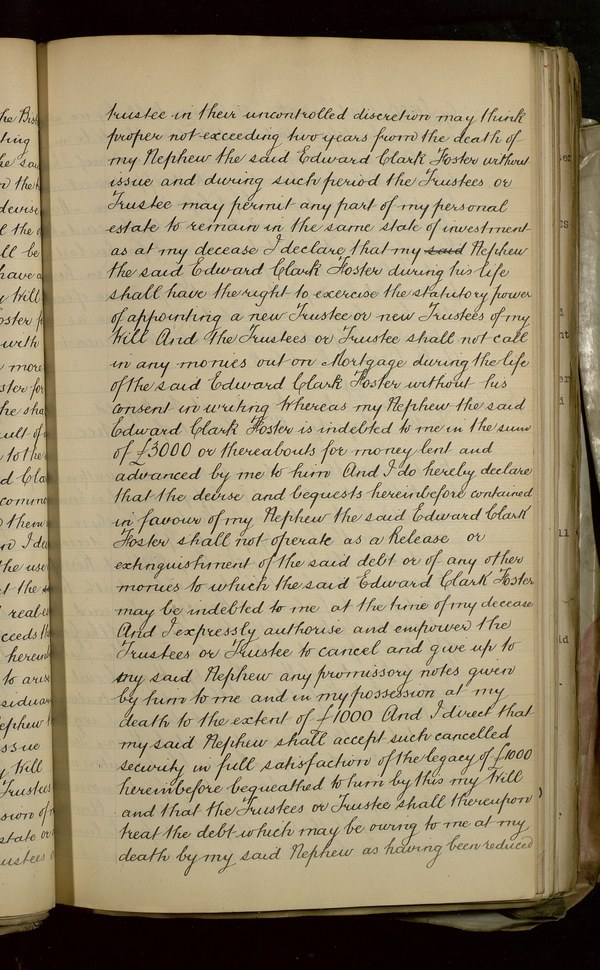 trustee in their uncontrolled discretion may think
proper not exceeding two years from the death of
my Nephew the said Edward Clark Foster without
issue and during such period the Trustees or
Trustee may permit any part of my personal
estate to remain in the same state of investment
as at my decease I declare that my said Nephew
the said Edward Clark Foster during his life
shall have the right to exercise the statutory power
of appointing a new Trustee or new Trustees of my
Will And the Trustees or Trustee shall not call
in any monies out on Mortgage during the life
of the said Edward Clark Foster without his
consent in writing Whereas my Nephew the said
Edward Clark Foster is indebted to me in the sum
of £3000 or thereabouts for money lent and
advanced by me to him And I do hereby declare
that the devise and bequests hereinbefore contained
in favour of my Nephew the said Edward Clark
Foster shall not operate as a Release or
extinguishment of the said debt or of any other
monies to which the said Edward Clark Foster
may be indebted to me at the time of my decease
And I expressly authorise and empower the
Trustees or Trustee to cancel and give up to
my said Nephew any promissory notes given
by him to me and in my possession at my
death to the extent of £1000 And I direct that
my said Nephew shall accept such cancelled
security in full satisfaction of the legacy of £1000
hereinbefore bequeathed to him by this my Will
and that the Trustees or Trustee shall thereupon
treat the debt which may be owing to me at my
death by my said Nephew as having been reduced